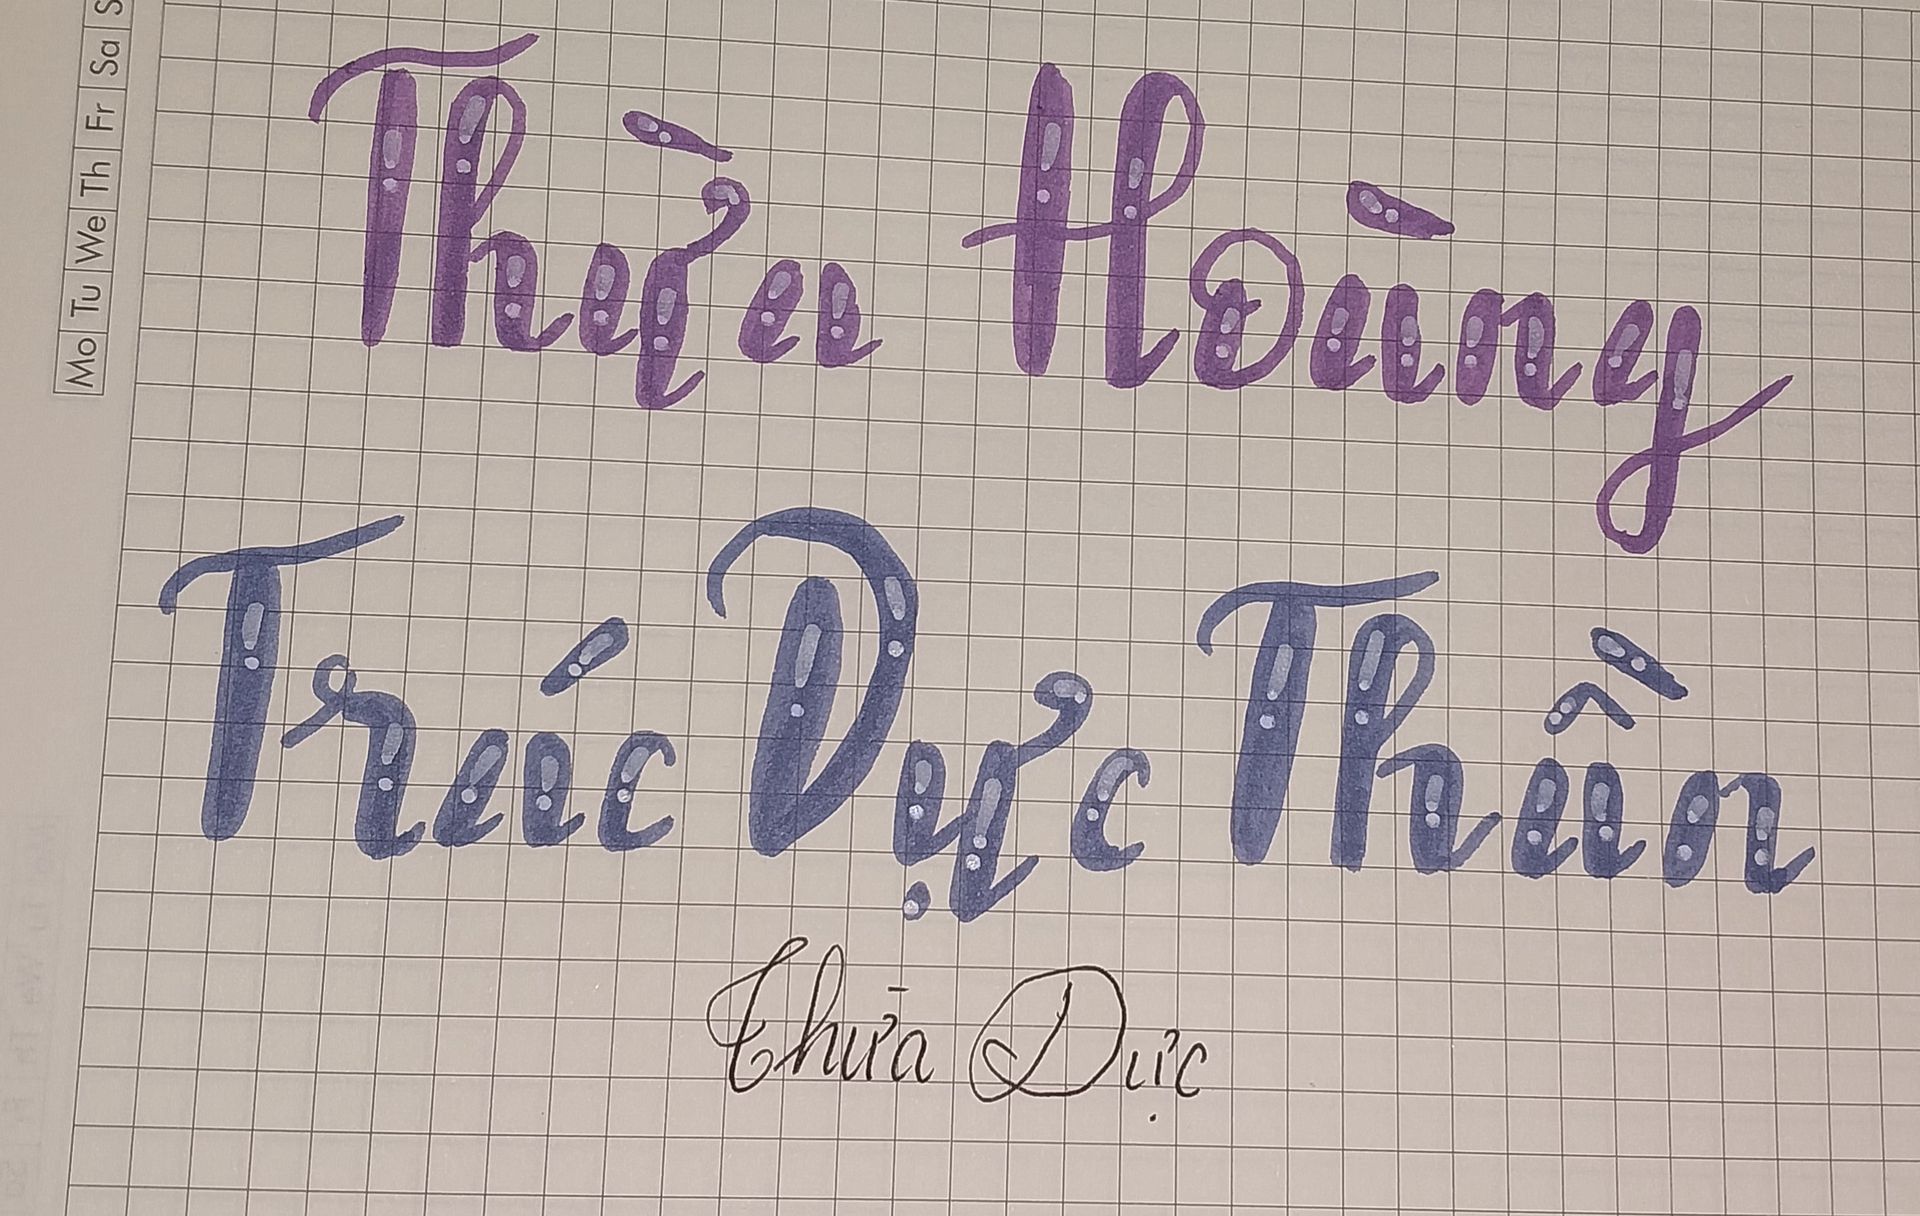 Mo Tu We Th Fr Sa S
Thừa Hoàng
Trúc Dực Thần
Thừa Dực